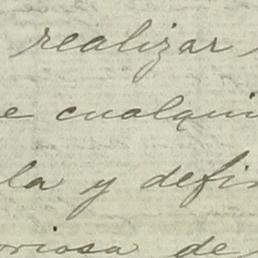 realizar
e cualqui
la y defi
oriosa de